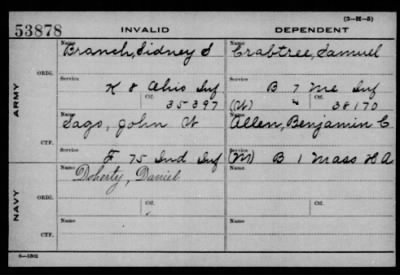 (3-H-5)
53878 INVALID DEPENDENT
ARMY
ORIG.
Name Branch, Sidney S Name Crabtree, Samuel
Service K 8 Ohio Inf Service B 7 Me Inf
Ctf. 35397 (W) Ctf. 38170
CTF.
Name John W Name Allen, Benjamin C.
Service F 75 Ind Inf (M) Service B 1 Mass H A
NAVY
ORIG.
Name Doherty, Daniel Name
Ctf. Ctf.
CTF.
Name Name